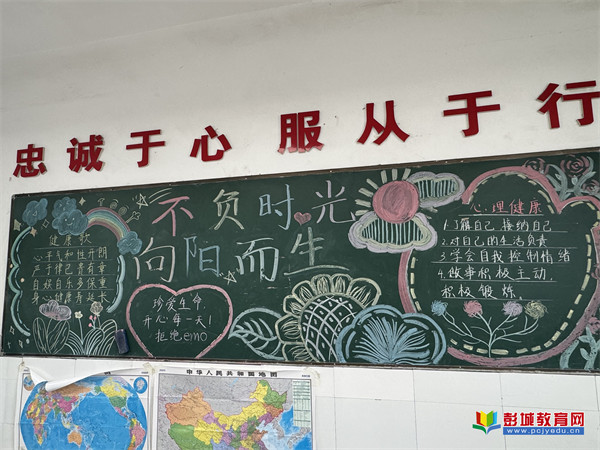 忠诚于心 服从于行
不负时光
向阳而生
健康歌
心平气和性开朗
严于律己贵有章
自娱自乐多保重
身心健康寿延长
珍爱生命
开心每一天!
拒绝emo
心理健康
1.了解自己 接纳自己
2.对自己的生活负责
3.学会自我控制情绪
4.做事积极主动
积极锻炼.
中华人民共和国地图
彭城教育网
www.pcjyedu.cn